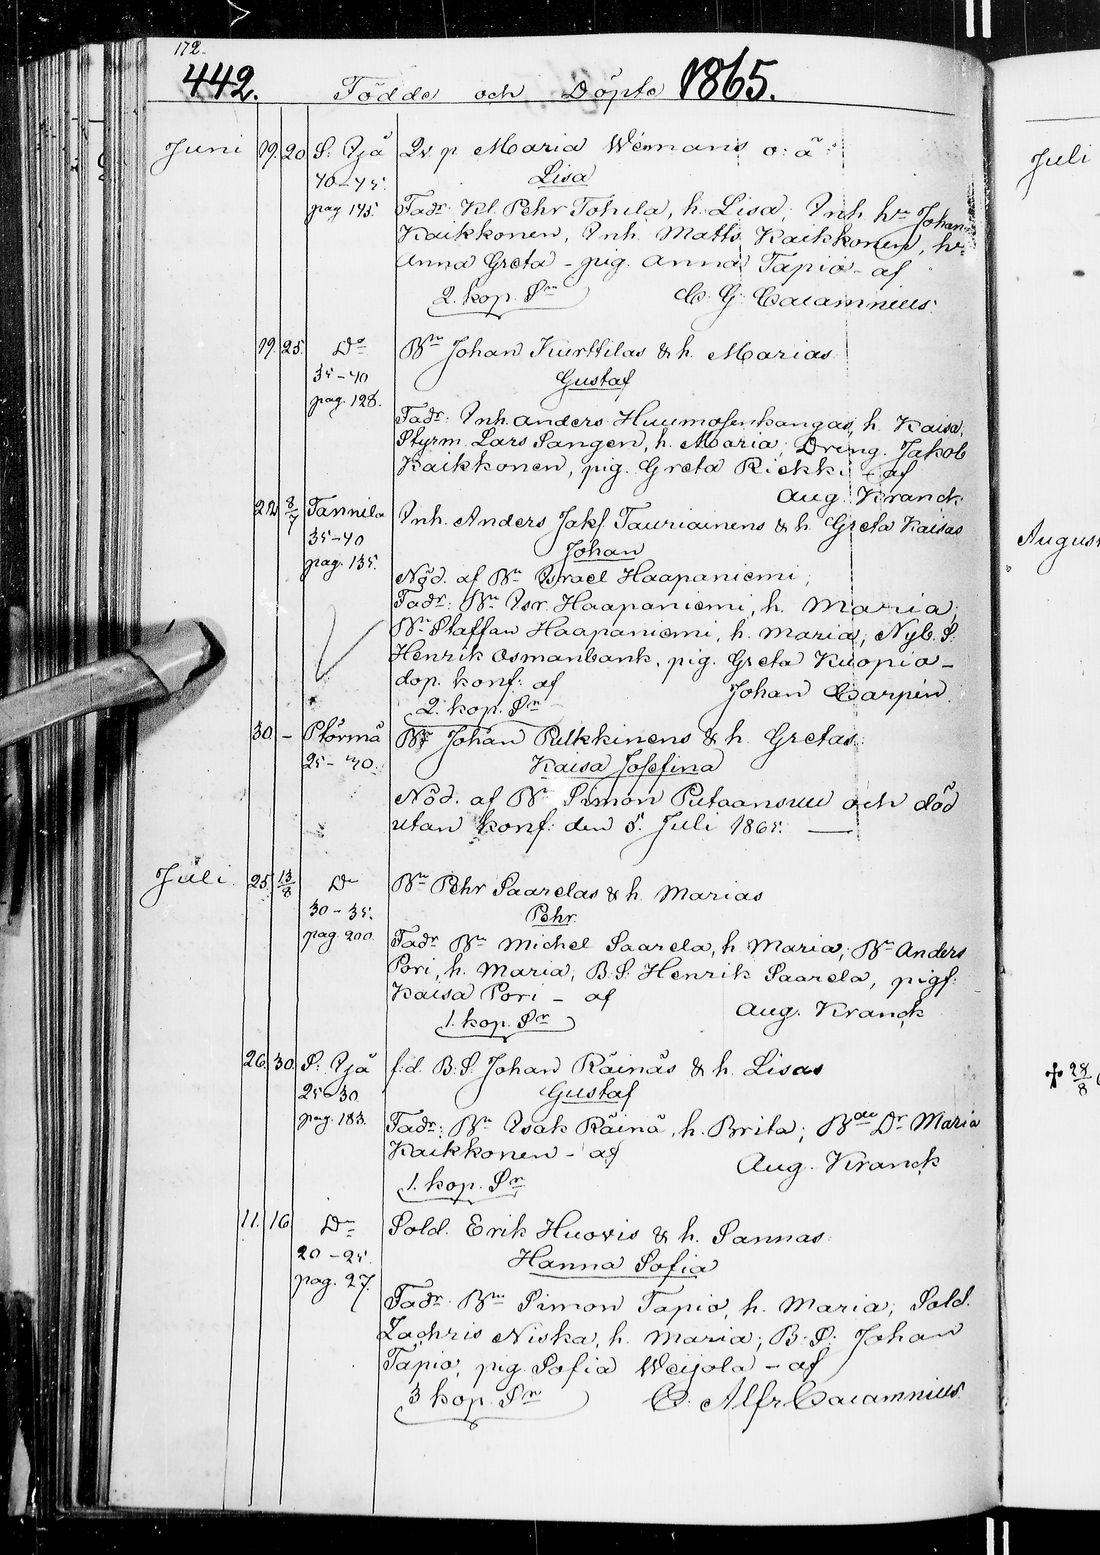 172.
442. Födde och Döpte 1865.
Juni 19. 20 S: Ijå Qv. p. Maria Wemans o: ä:
40–45. Lisa
pag. 145. Fadr: Kl. Pehr Tohila, h. Lisa; Inh. hn Johan
Kaikkonen, Inh. Matts Kaikkonen, hn
Anna Greta – pig. Anna Tapio – af
2. kop. Sr C. G. Calamnius.
19. 25. Do Bn Johan Kurttilas & h. Marias
35–40 Gustaf
pag. 128. Fadr: Inh. Anders Huumosenkangas, h. Kaisa,
Styrm. Lars Sangen, h. Maria; Dräng. Jakob
Kaikkonen, pig. Greta Riekki – af
Aug. Kranck
22. 8/7 Tannila Inh. Anders Jak. Tauriainens & h. Greta Kaisas
35–40 Johan
pag. 135. Nöd. af Bn Israel Haapaniemi;
Fadr: Bn Isr. Haapaniemi, h. Maria;
Bn Staffan Haapaniemi, h. Maria; Nyb. S.
Henrik Osmanbank, pig. Greta Kuopio –
dop. konf: af Johan Carpén.
2. kop. Sr
30. – Pörmä Bn Johan Pulkkinens & h. Gretas
25–40. Kaisa Josefina
Nöd. af Bn Simon Putaansuu och död
utan konf: den 5. Juli 1865. —
Juli. 25. 13/8 Do Bn Pehr Saarelas & h. Marias
30–35. Pehr
pag. 200. Fadr Bn Michel Saarela, h. Maria; Bn Anders
Pori, h. Maria; B. S. Henrik Saarela, pig:
Kaisa Pori – af Aug. Kranck
1. kop. Sr
26. 30. S. Ijå f.d. B. S. Johan Räinäs & h. Lisas
25–30 Gustaf
pag. 183. Fadr: Bn Isak Räinä, h. Brita; Bde Dr Maria
Kaikkonen – af Aug. Kranck
1. kop. Sr
11. 16. Do Sold. Erik Huovis & h. Sannas
20–25. Hanna Sofia
pag. 27. Fadr: Bn Simon Tapio, h. Maria; Sold.
Zachris Niska, h. Maria; B. S: Johan
Tapio, pig. Sofia Weijola – af
3 kop. Sr C. Alfr Calamnius.
Juli
August
✝ 28/8